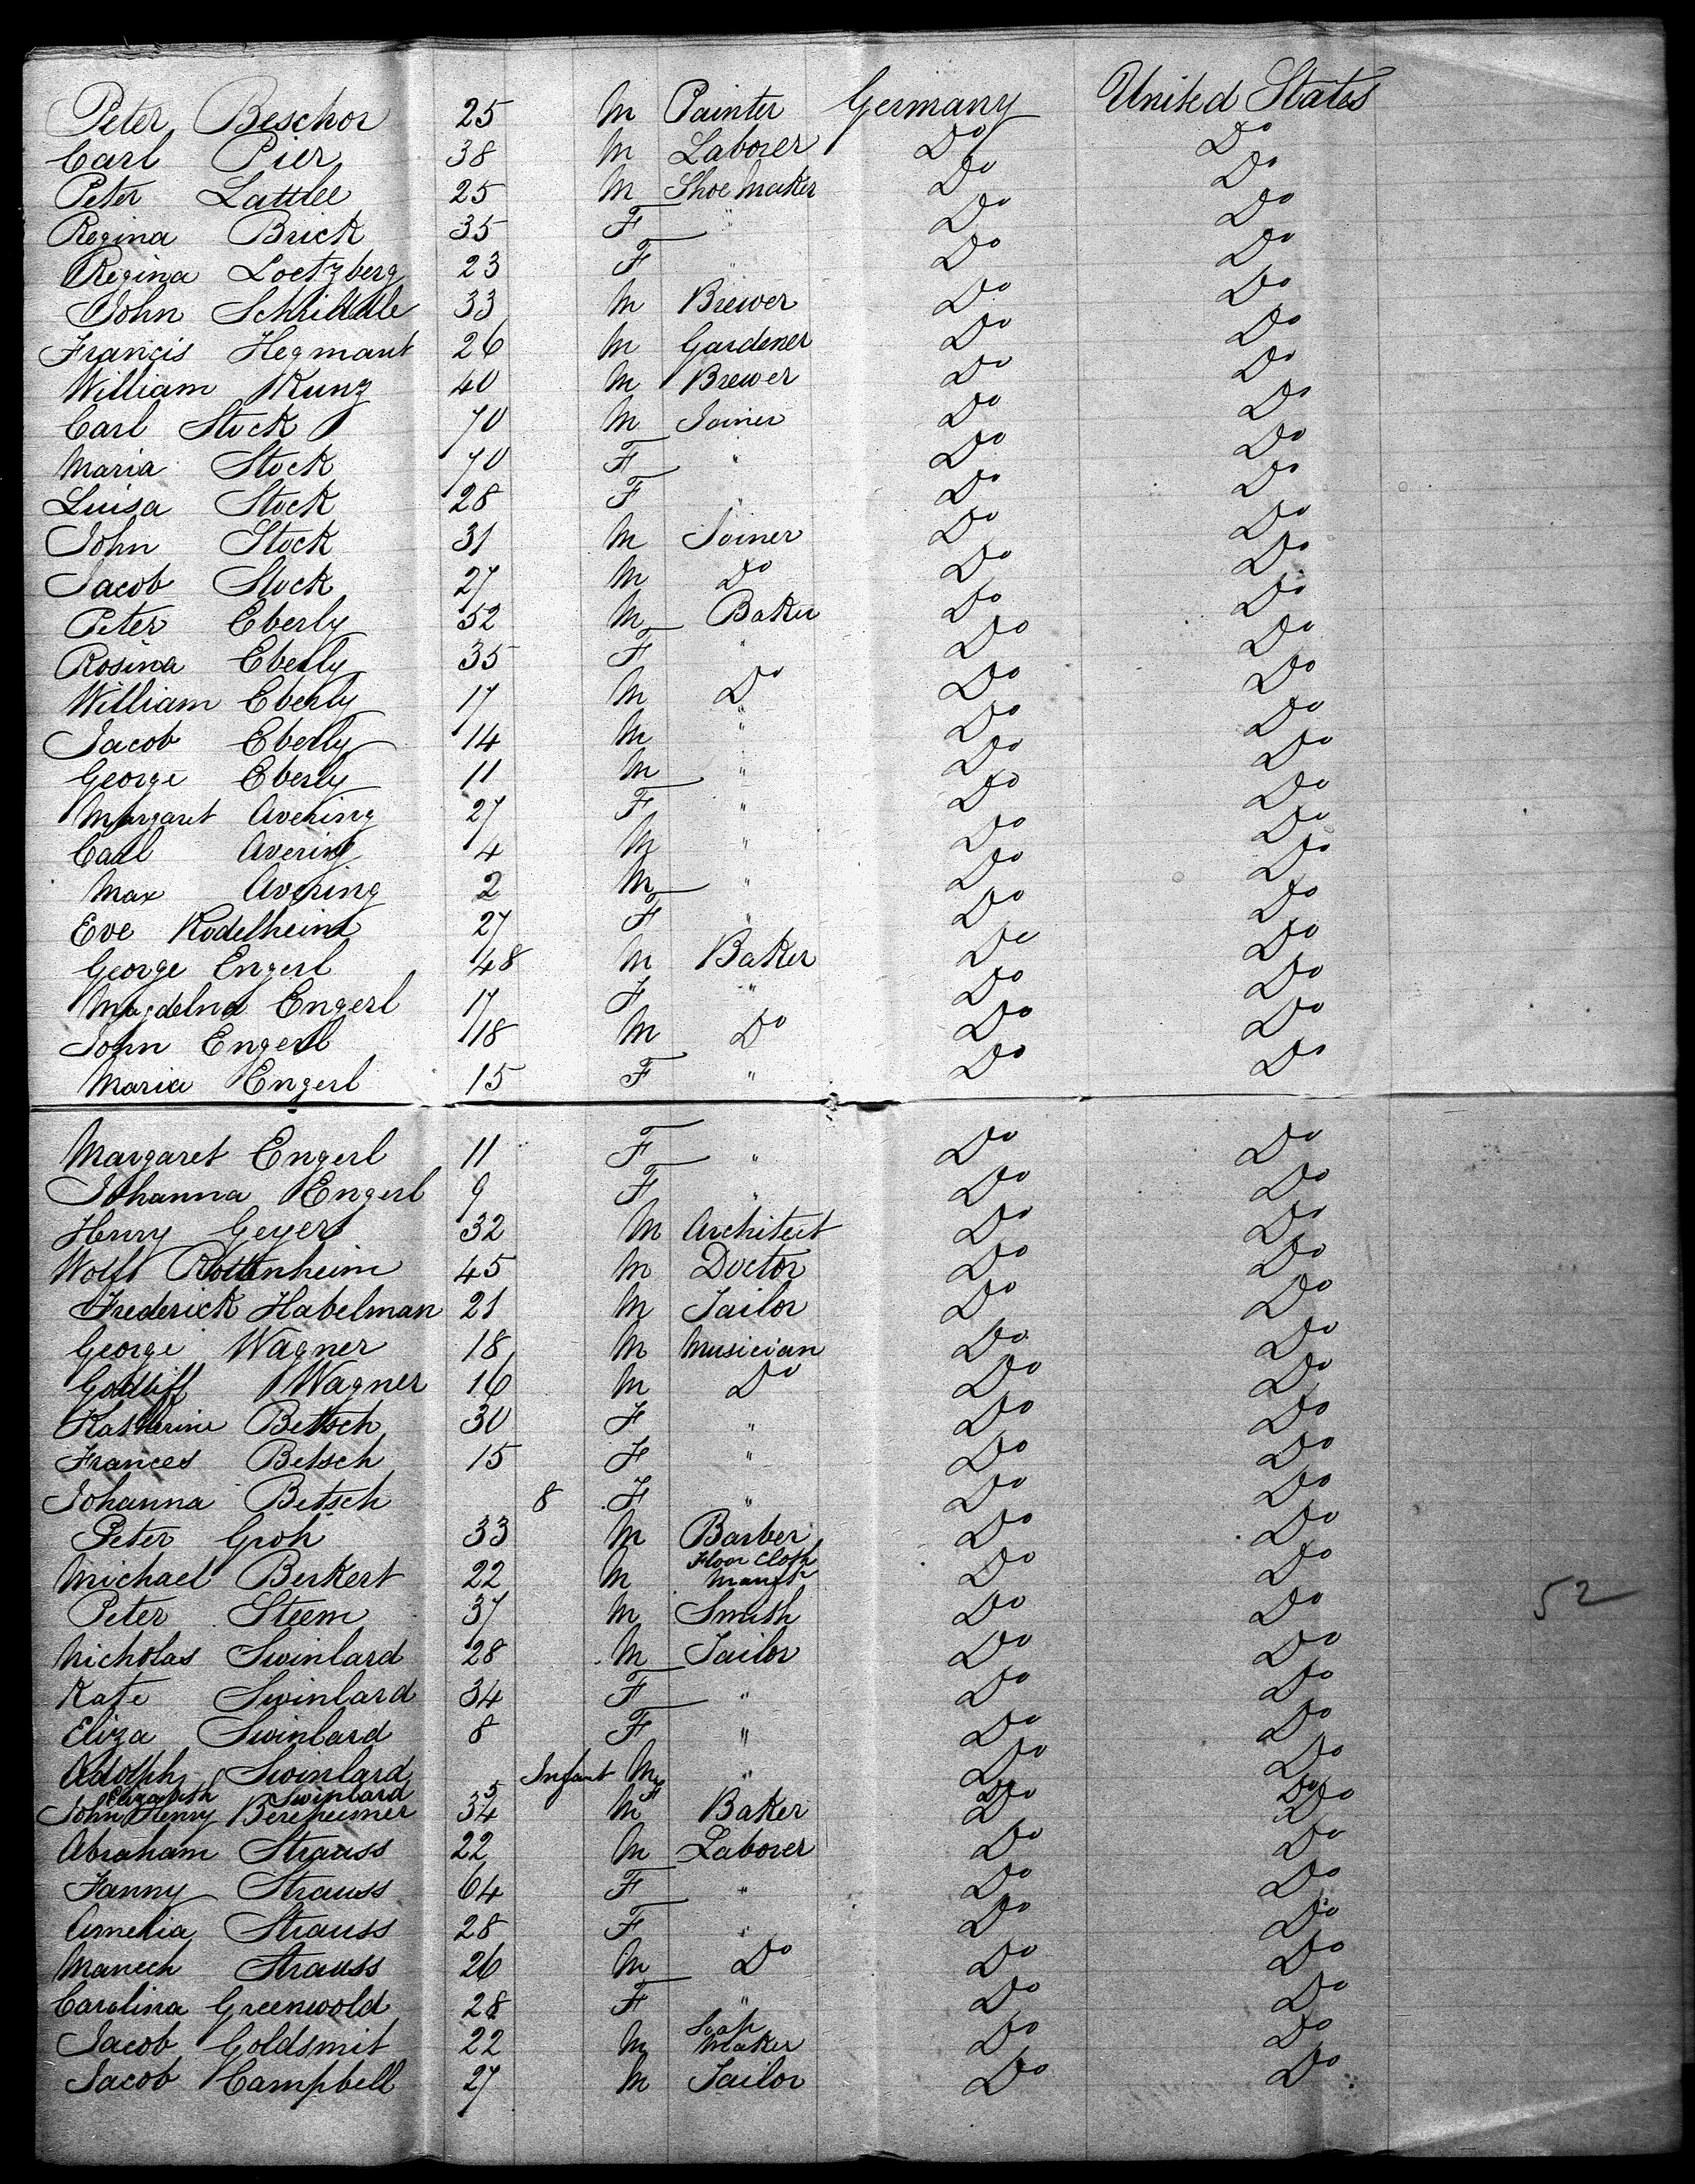 Peter Beschor 25 M Painter Germany United States
Carl Pier 38 M Laborer Do Do
Peter Lattlee 25 M Shoe Maker Do Do
Regina Brick 35 F " Do Do
Regina Loetzberg 23 F " Do Do
John 33 M Brewer Do Do
Francis Hegmant 26 M Gardener Do Do
William Kunz 40 M Brewer Do Do
Carl Stock 70 M Joiner Do Do
Maria Stock 70 F " Do Do
Luisa Stock 28 F " Do Do
John Stock 31 M Joiner Do Do
Jacob Stock 27 M Do Do Do
Peter Eberly 52 M Baker Do Do
Rosina Eberly 35 F " Do Do
William Eberly 17 M Do Do Do
Jacob Eberly 14 M " Do Do
George Eberly 11 M " Do Do
Margaret Avering 27 F " Do Do
Carl Avering 4 M " Do Do
Max Avering 2 M " Do Do
Eve Rodelheim 27 F " Do Do
George Engerl 48 M Baker Do Do
Magdelna Engerl 17 F " Do Do
John Engerl 18 M Do Do Do
Maria Engerl 15 F " Do Do
Margaret Engerl 11 F " Do Do
Johanna Engerl 9 F " Do Do
Henry Geyer 32 M Architect Do Do
Wolf Rottenheim 45 M Doctor Do Do
Frederick Habelman 21 M Tailor Do Do
George Wagner 18 M Musician Do Do
Gottliff Wagner 16 M Do Do Do
Katherine Betsch 30 F " Do Do
Frances Betsch 15 F " Do Do
Johanna Betsch 8 F " Do Do
Peter Groh 33 M Barber Do Do
Michael Berkert 22 M Floor Cloth Manfr Do Do
Peter Steem 37 M Smith Do Do
52
Nicholas Swinlard 28 M Tailor Do Do
Kate Swinlard 34 F " Do Do
Eliza Swinlard 8 F " Do Do
Adolph Swinlard Infant M " Do Do
Elizabeth Swinlard 5 F Do Do
John Henry Bereheimer 34 M Baker Do Do
Abraham Strauss 22 M Laborer Do Do
Fanny Strauss 64 F " Do Do
Amelia Strauss 28 F " Do Do
Manech Strauss 26 M Do Do Do
Carolina Greenwold 28 F " Do Do
Jacob Goldsmit 22 M Soap Maker Do Do
Jacob Campbell 27 M Tailor Do Do